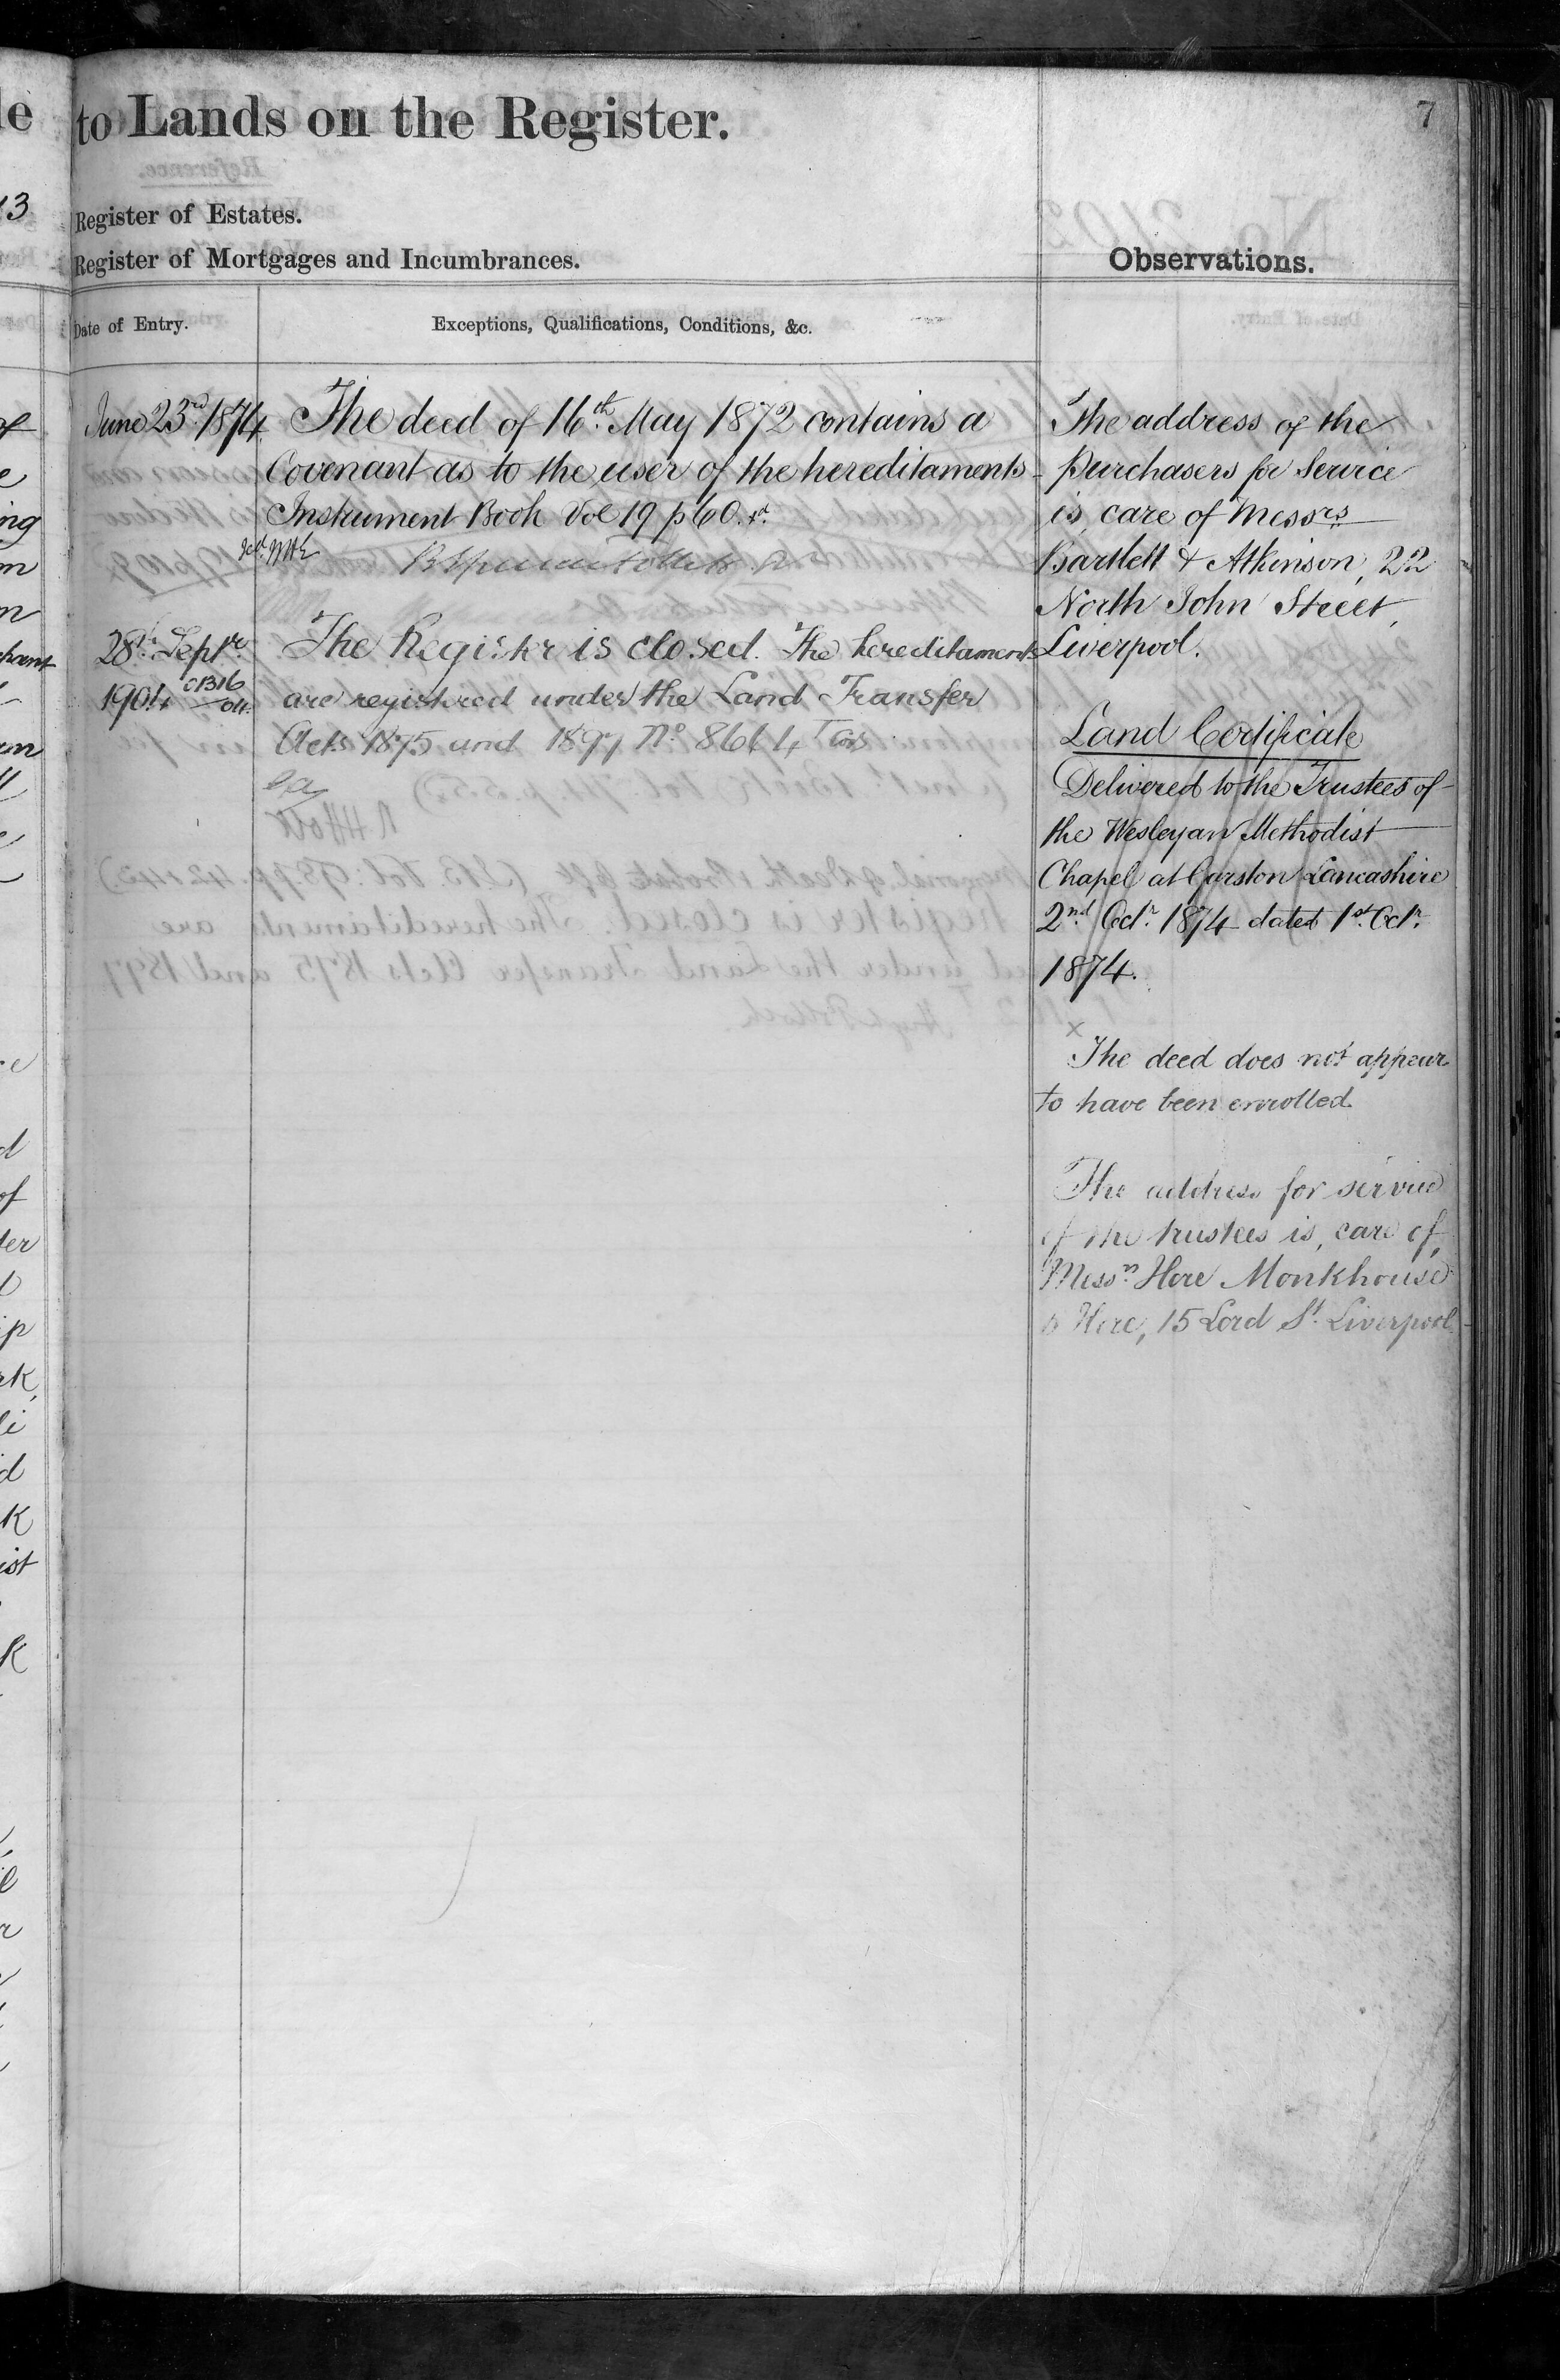 to Lands on the Register.
7
Register of Estates.
Register of Mortgages and Incumbrances.
Observations.
Date of Entry.
Exceptions, Qualifications, Conditions, &c.
June 23rd 1874
The deed of 16th May 1872 contains a
Covenant as to the user of the hereditaments
Instrument Book Vol 19 p 60.
28th Septre
1904
C1316
/04
The Register is closed. The hereditaments
are registered under the Land Transfer
Acts 1875 and 1897 No 8664
The address of the
purchasers for Service
is, care of Messrs
Bartlett & Atkinson, 22
North John Street,
Liverpool.
Land Certificate
Delivered to the Trustees of
the Wesleyan Methodist
Chapel at Garston Lancashire
2nd Octr 1874 dated 1st Octr
1874.
x
The deed does not appear
to have been enrolled
The address for service
of the trustees is, care of,
Messrs Hore Monkhouse
& Hore, 15 Lord St Liverpool